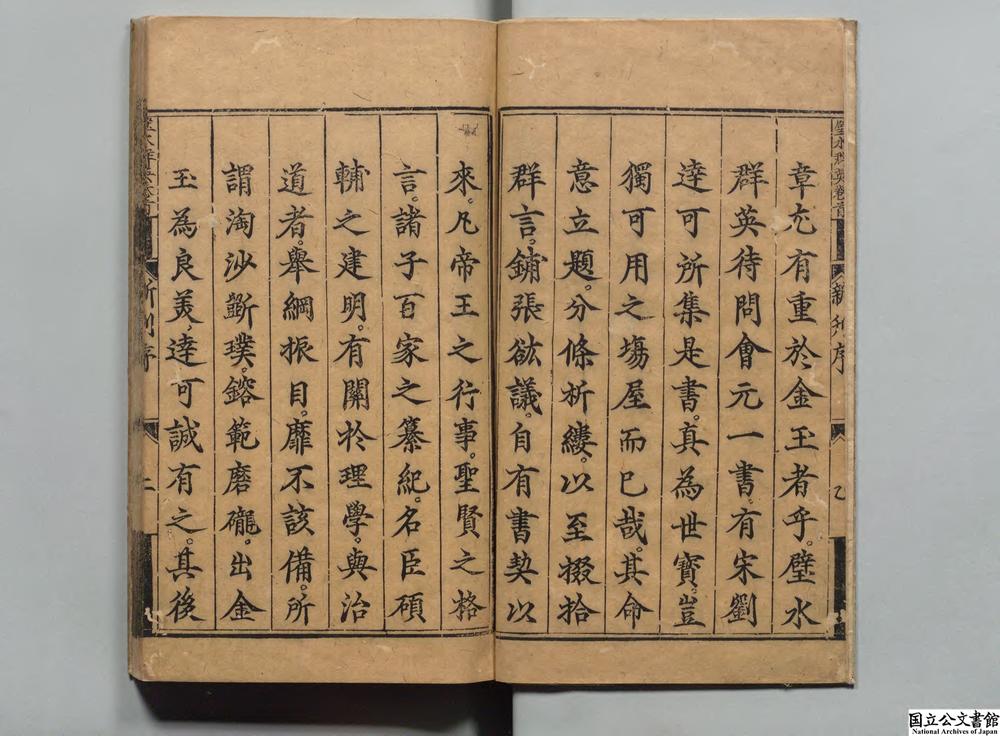 章尤有重於金玉者乎。璧水
群英待問會元一書。有宋劉
達可所集是書。真為世寶。豈
獨可用之塲屋而已哉。其命
意立題。分條析縷。以至掇拾
群言。鋪張竑議。自有書契以
來。凡帝王之行事。聖賢之格
言。諸子百家之纂紀。名臣碩
輔之建明。有關於理學。與治
道者。舉綱振目。靡不該備。所
謂淘沙斲璞。鎔範磨礲。出金
玉為良美。達可誠有之。其後
国立公文書館
National Archives of Japan